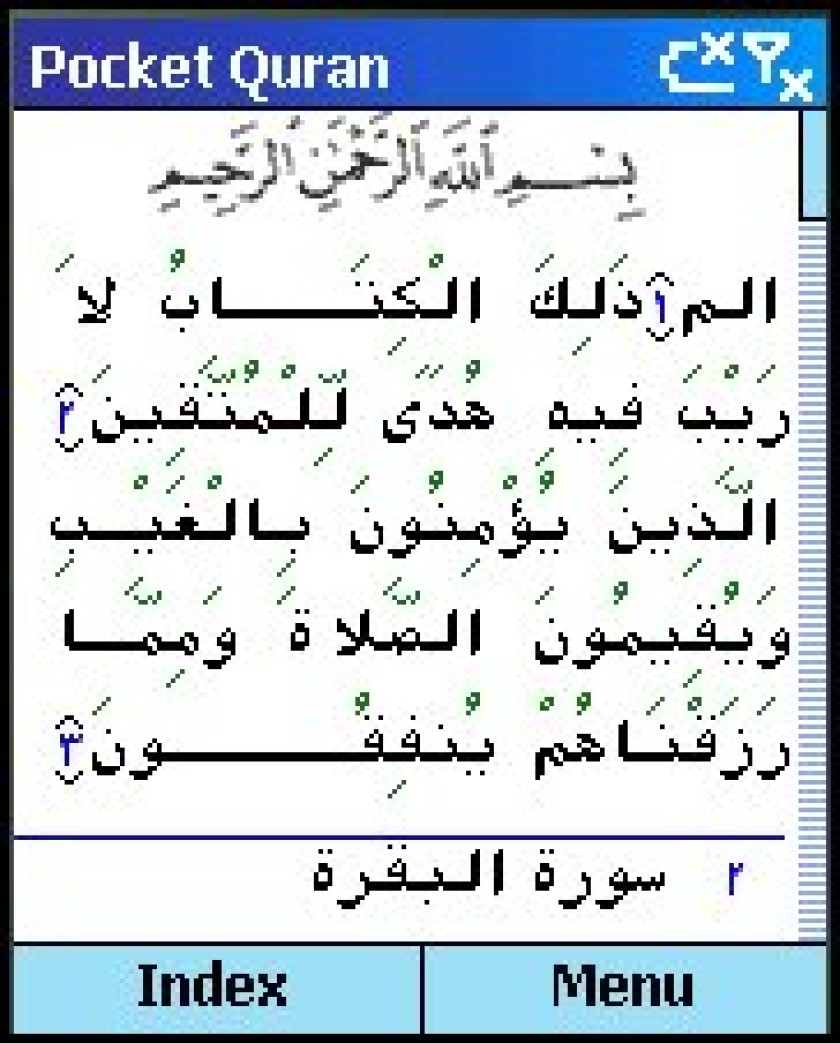 Pocket Quran
بِسْمِ اللَّهِ الرَّحْمَنِ الرَّحِيمِ
الم ١ ذَلِكَ الْكِتَـــابُ لاَ
رَيْبَ فِيهِ هُدًى لِّلْمُتَّقِينَ ٢
الَّذِينَ يُؤْمِنُونَ بِالْغَيْـبِ
وَيُقِيمُونَ الصَّلاةَ وَمِمَّـا
رَزَقْنَاهُمْ يُنْفِقُـــــونَ ٣
٢ سورة البقرة
Index Menu